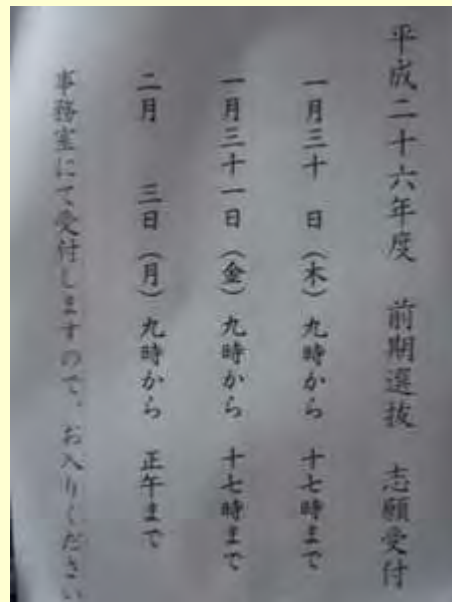 平成二十六年度　前期選抜　志願受付
一月三十　日（木）九時から　十七時まで
一月三十一日（金）九時から　十七時まで
二月　　三日（月）九時から　正午まで
事務室にて受付しますので、お入りください